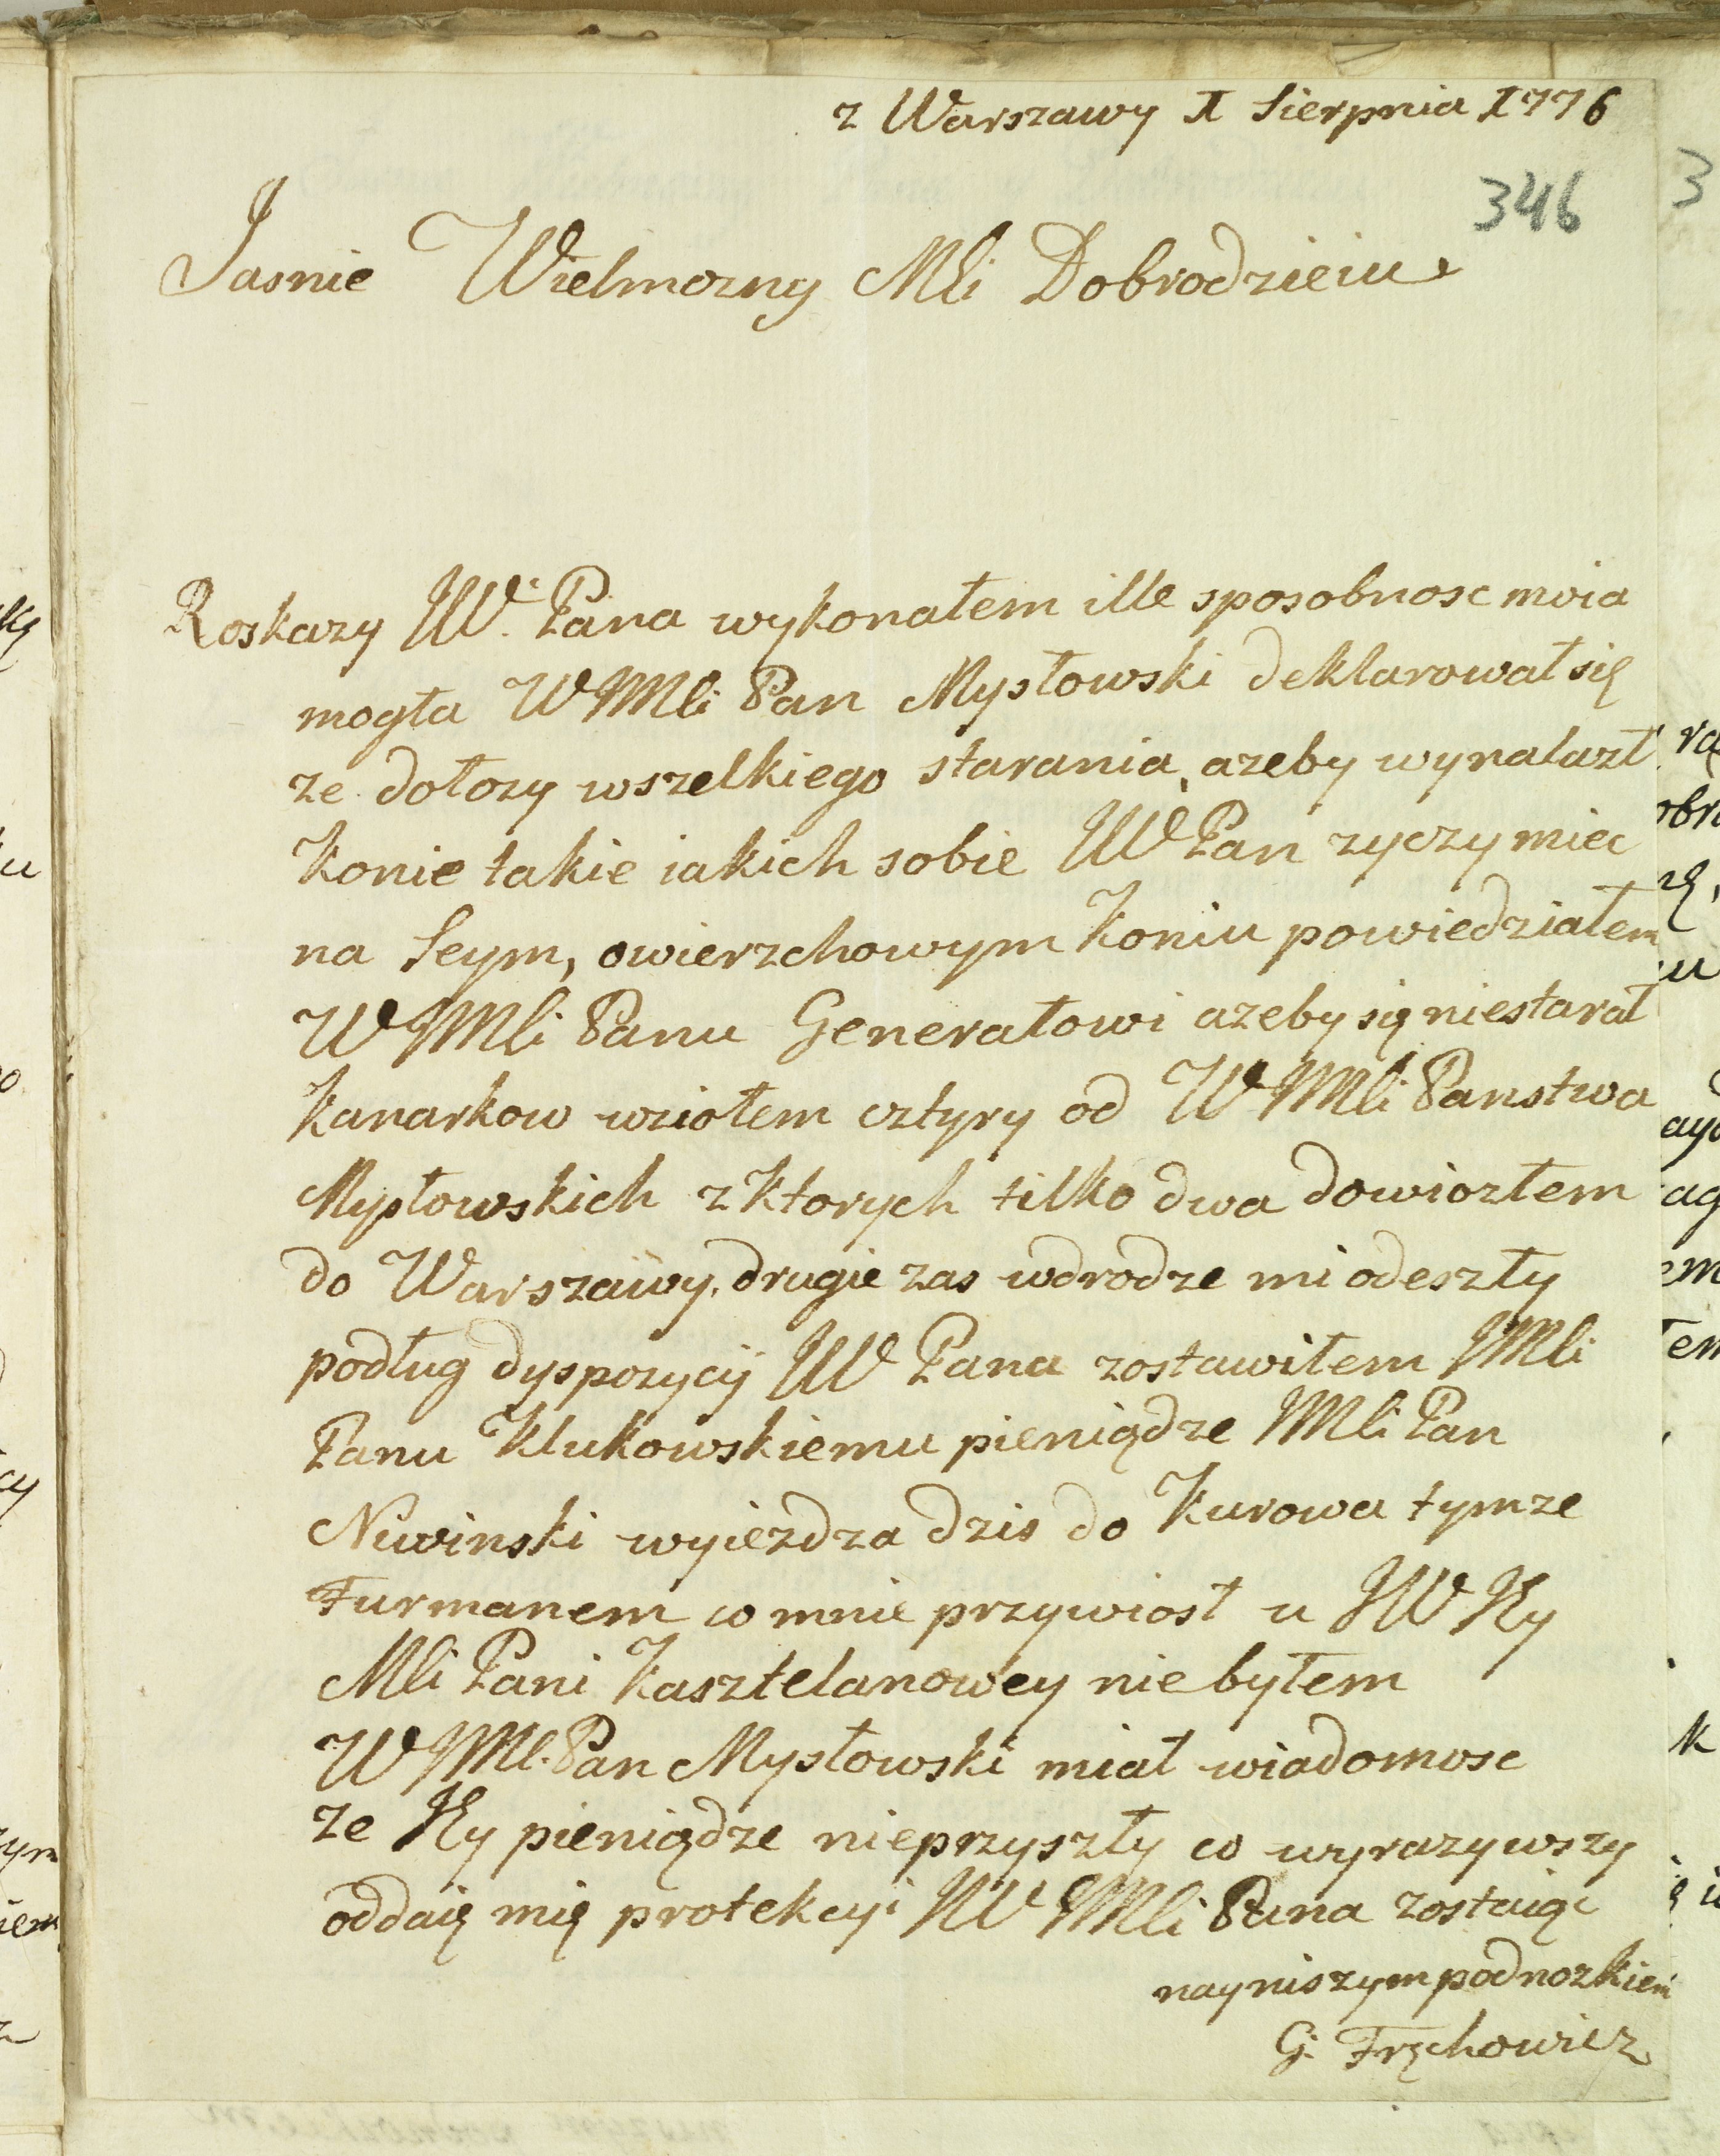 z Warszawy 1 Sierpnia 1776
346
Jasnie Wielmozny Mli Dobrodzieiu
Roskazy JW. Pana wykonałem ille sposobnosc moia
mogła WJMli Pan Mysłowski deklarował się
ze dołozy wszelkiego starania, azeby wynalazł
Konie takie iakich sobie JW Pan zyczy miec
na Seym, owierzchowym Koniu powiedziałem
WJMli Panu Generałowi azeby się niestarał
Kanarkow wziołem cztyry od WJMli Panstwa
Mysłowskich z Ktorych tilko dwa dowiozłem
do Warszawy. drugie zas wdrodze mi odeszły
podług dyspozycij JW Pana zostawiłem JMli
Panu Klukowskiemu pieniądze JMli Pan
Niwinski wyiezdza dzis do Kurowa tymze
Furmanem co mnie przywiosł u JW Jey
Mli Pani Kasztelanowey nie byłem
WJMli Pan Mysłowski miał wiadomosc
ze Jey pieniądze nieprzyszły co wyrazywszy
oddaię mię protekcyi JWJMli Pana zostaiąc
nayniszym podnozkiem
G. Fręchowicz